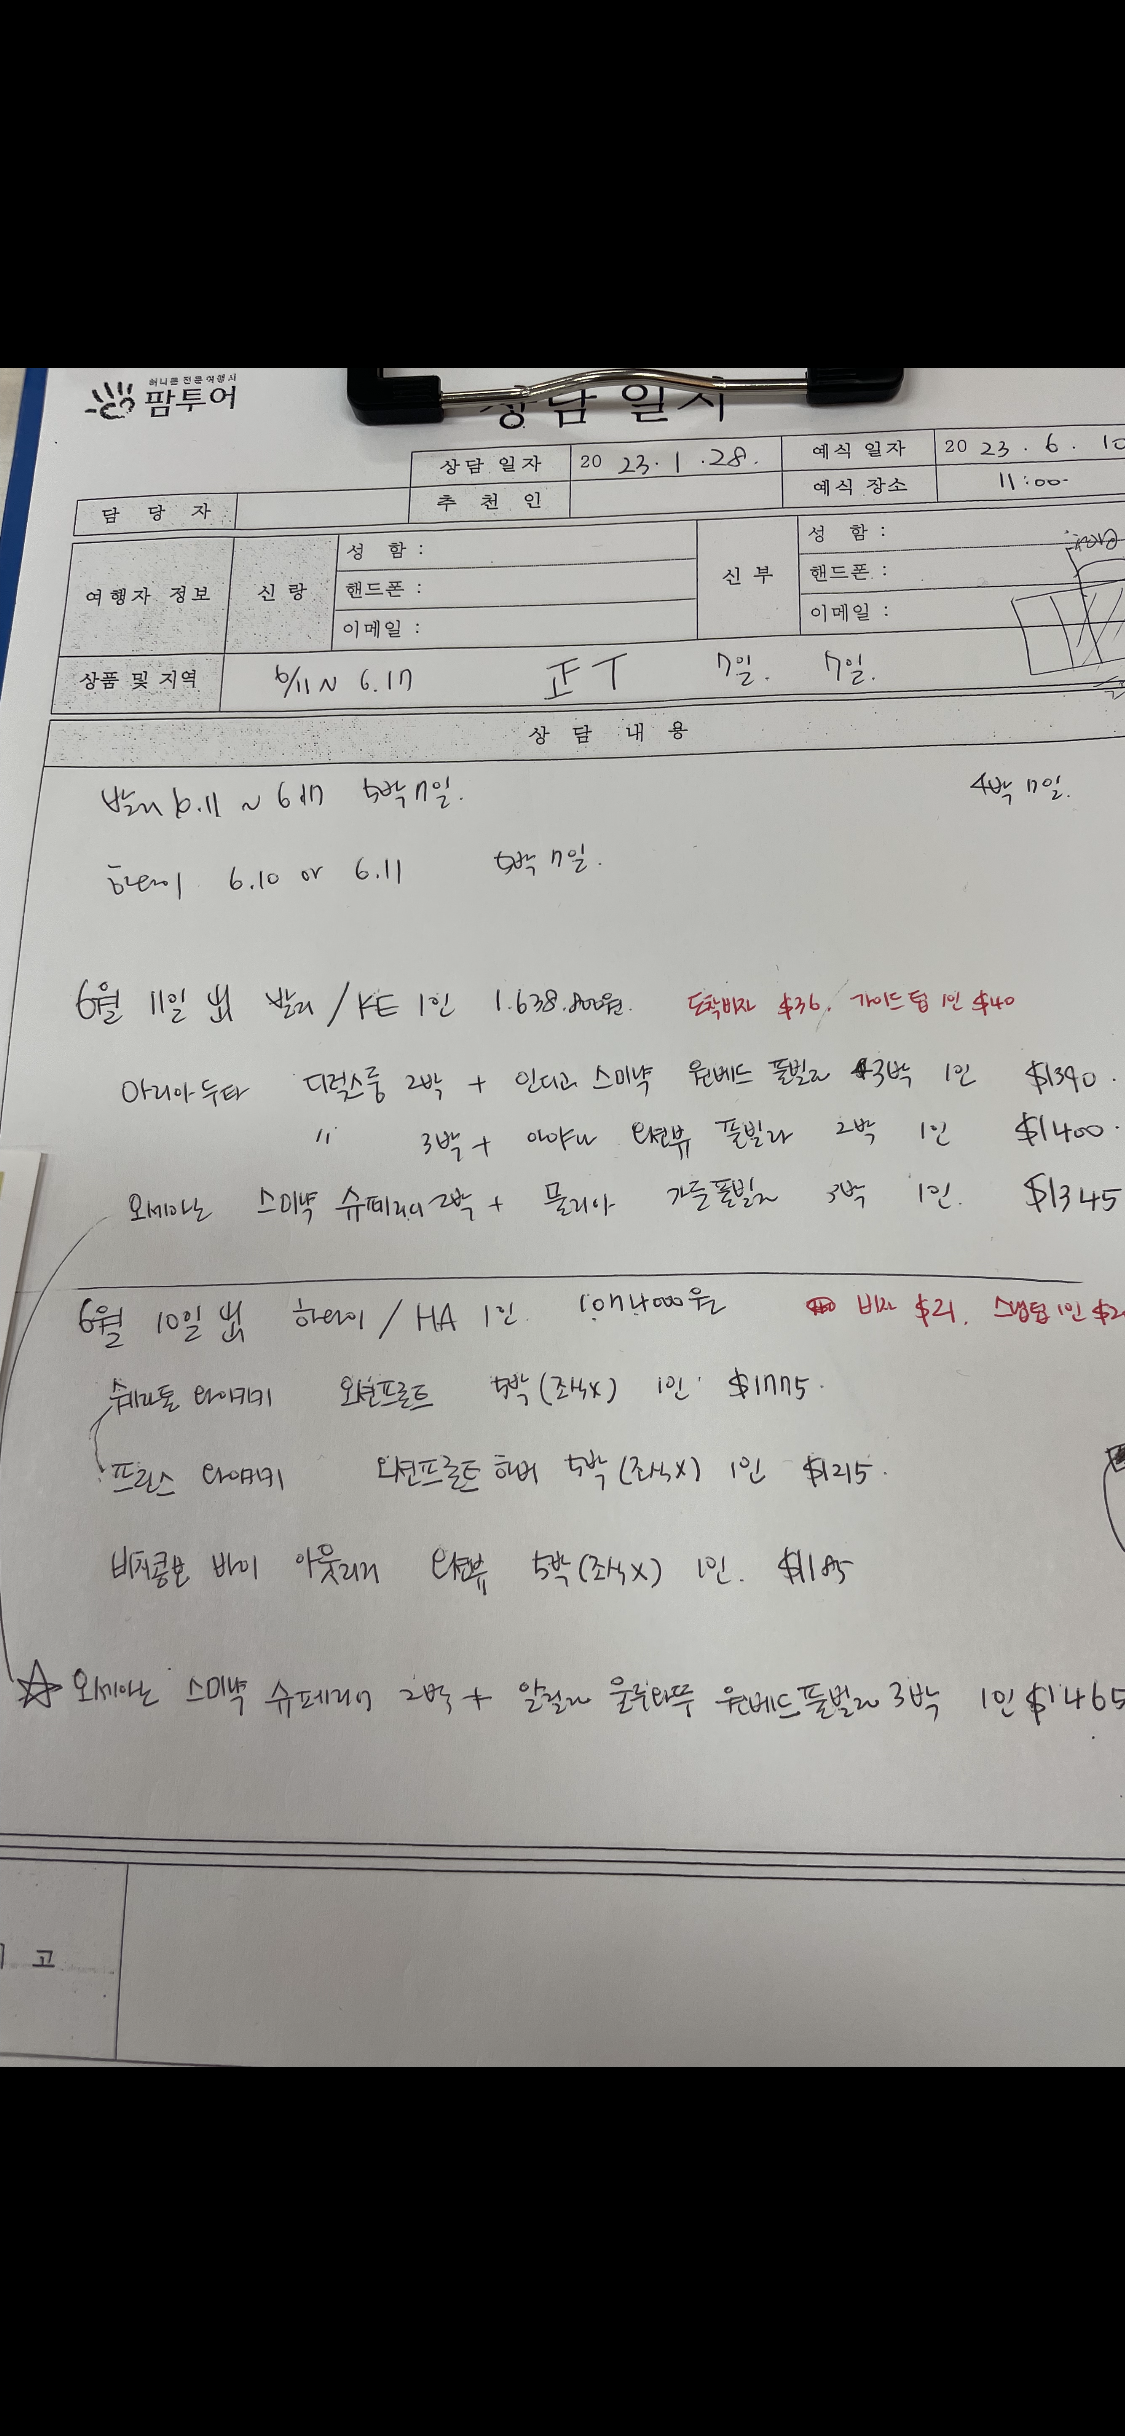 허니문 전문 여행사
팜투어
상담일지
상담 일자 20 23. 1 .28. 예식 일자 20 23 . 6 . 10
담 당 자 추 천 인 예식 장소 11:00-
여행자 정보 신 랑 성 함 : 신 부 성 함 :
핸드폰 : 핸드폰 :
이메일 : 이메일 :
상품 및 지역 6/11 ~ 6.17 正丅 7일. 7일.
상 담 내 용
발리 6.11 ~ 6.17 5박 7일. 4박 7일.
하와이 6.10 or 6.11 5박 7일.
6월 11일 出 발리 / KE 1인 1.638.800원. 도착비자 $36, 가이드팁 1인 $40
아리아두타 디럭스룸 2박 + 인디고 스미냑 원베드 풀빌라 3박 1인 $1390.
〃 3박 + 아야나 오션뷰 풀빌라 2박 1인 $1400.
오세아노 스미냑 슈페리어 2박 + 물리아 가든풀빌라 3박 1인. $1345
6월 10일 出 하와이 / HA 1인. 1074000원 비자 $21, 스냅팁 1인 $2
쉐라톤 와이키키 오션프론트 5박 (조식X) 1인 $1775.
프린스 와이키키 오션프론트 하버 5박 (조식X) 1인 $1215.
비치콤보 바이 아웃리거 오션뷰 5박 (조식X) 1인. $1185
☆ 오세아노 스미냑 슈페리어 2박 + 알릴라 울루와뚜 원베드풀빌라 3박 1인 $1465
고